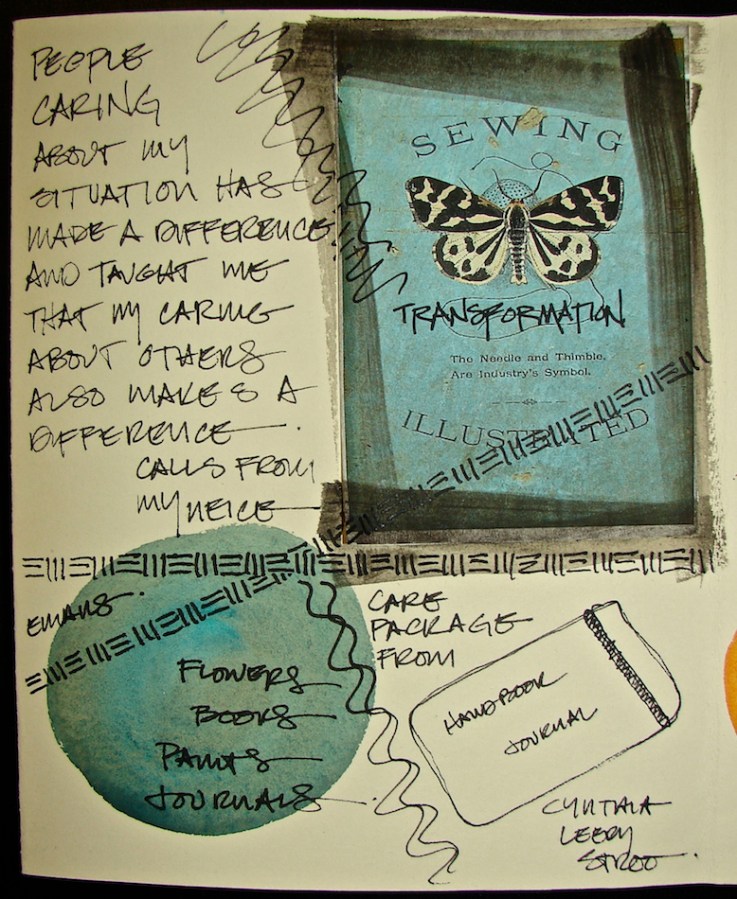 PEOPLE
CARING
ABOUT MY
SITUATION HAS
MADE A DIFFERENCE!
AND TAUGHT ME
THAT MY CARING
ABOUT OTHERS
ALSO MAKES A
DIFFERENCE.
CALLS FROM
MY NEICE
EMAILS.
FLOWERS
BOOKS
PAINTS
JOURNALS.
SEWING
TRANSFORMATION
The Needle and Thimble,
Are Industry's Symbol.
ILLUSTRATED
CARE
PACKAGE
FROM
HANDBOOK
JOURNAL
CYNTHIA
LEERY